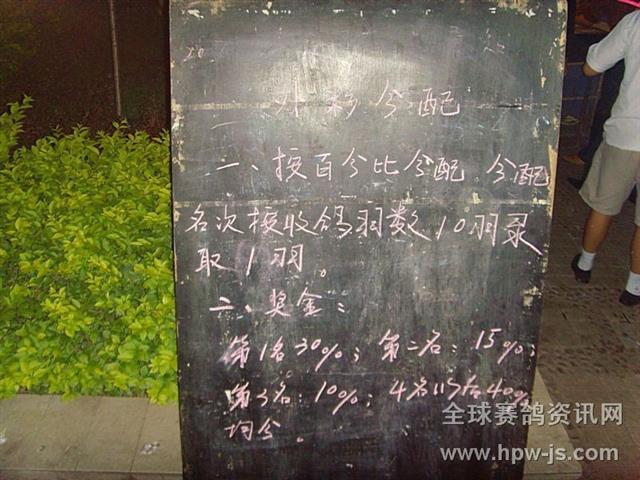 分配
一、按百分比分配 分配
名次按收鸽羽数10羽录
取1羽。
二、奖金：
第1名30%；第二名：15%；
第3名：10%；4名以后40%
均分。
全球赛鸽资讯网
www.hpw-js.com